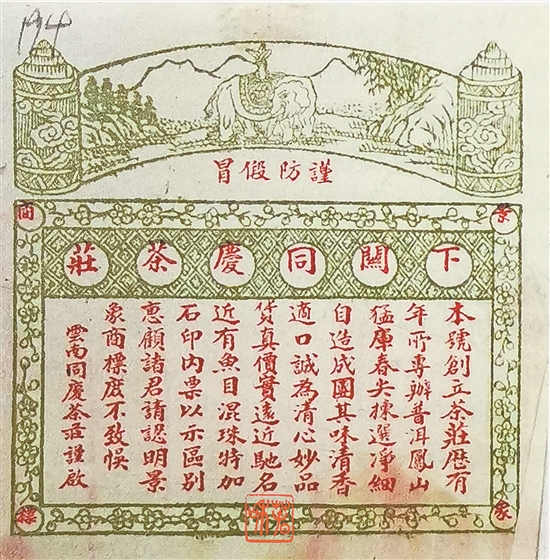 194
謹防假冒
景象
商標
下關同慶茶莊
本號創立茶莊歷有
年所專辦普洱鳳山
猛庫春尖揀選凈細
自造成圓其味清香
適口誠為清心妙品
貨真價實遠近馳名
近有魚目混珠特加
石印內票以示區別
惠顧諸君請認明景
象商標庶不致悞
雲南同慶茶莊謹啟